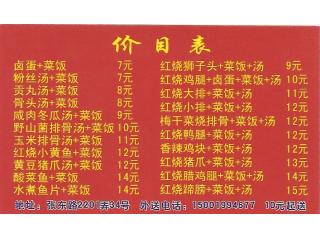 价目表
卤蛋+菜饭 7元
粉丝汤+菜饭 7元
贡丸汤+菜饭 8元
骨头汤+菜饭 8元
咸肉冬瓜汤+菜饭 9元
野山菌排骨汤+菜饭 10元
玉米排骨汤+菜饭 11元
红烧小黄鱼+菜饭 12元
黄豆猪爪汤+菜饭 12元
酸菜鱼+菜饭 14元
水煮鱼片+菜饭 14元
红烧狮子头+菜饭+汤 9元
红烧鸡腿+卤蛋+菜饭+汤 10元
红烧大排+菜饭+汤 11元
红烧小排+菜饭+汤 12元
梅干菜烧排骨+菜饭+汤 12元
红烧鸭腿+菜饭+汤 12元
香辣鸡块+菜饭+汤 12元
红烧猪爪+菜饭+汤 13元
红烧腊鸡腿+菜饭+汤 14元
红烧蹄膀+菜饭+汤 15元
地址：张东路2201弄34号 外送电话：15001994677 10元起送